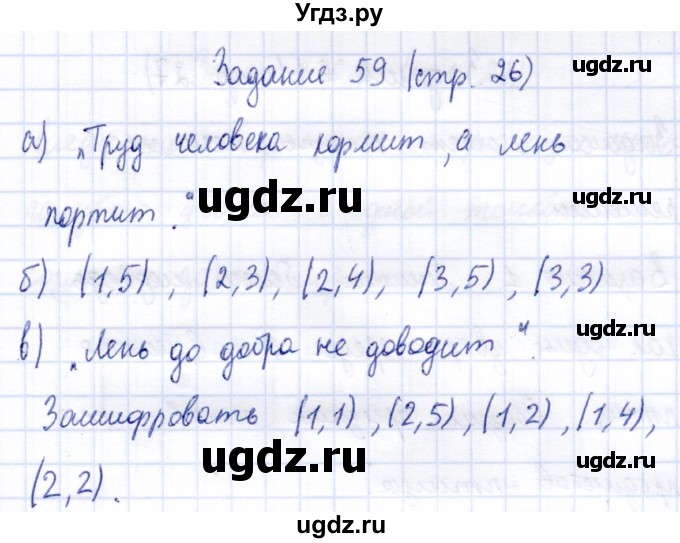 Угдз.ру
Задание 59 (стр. 26)
ugdz.ru
а) „Труд человека кормит, а лень
ugdz.ru
портит." ugdz.ru
ugdz.ru
б) (1,5), (2,3), (2,4), (3,5), (3,3)
в) „Лень до добра не доводит".
ugdz.ru
Зашифровать (1,1), (2,5), (1,2), (1,4),
ugdz.ru
ugdz.ru
(2,2).
ugdz.ru